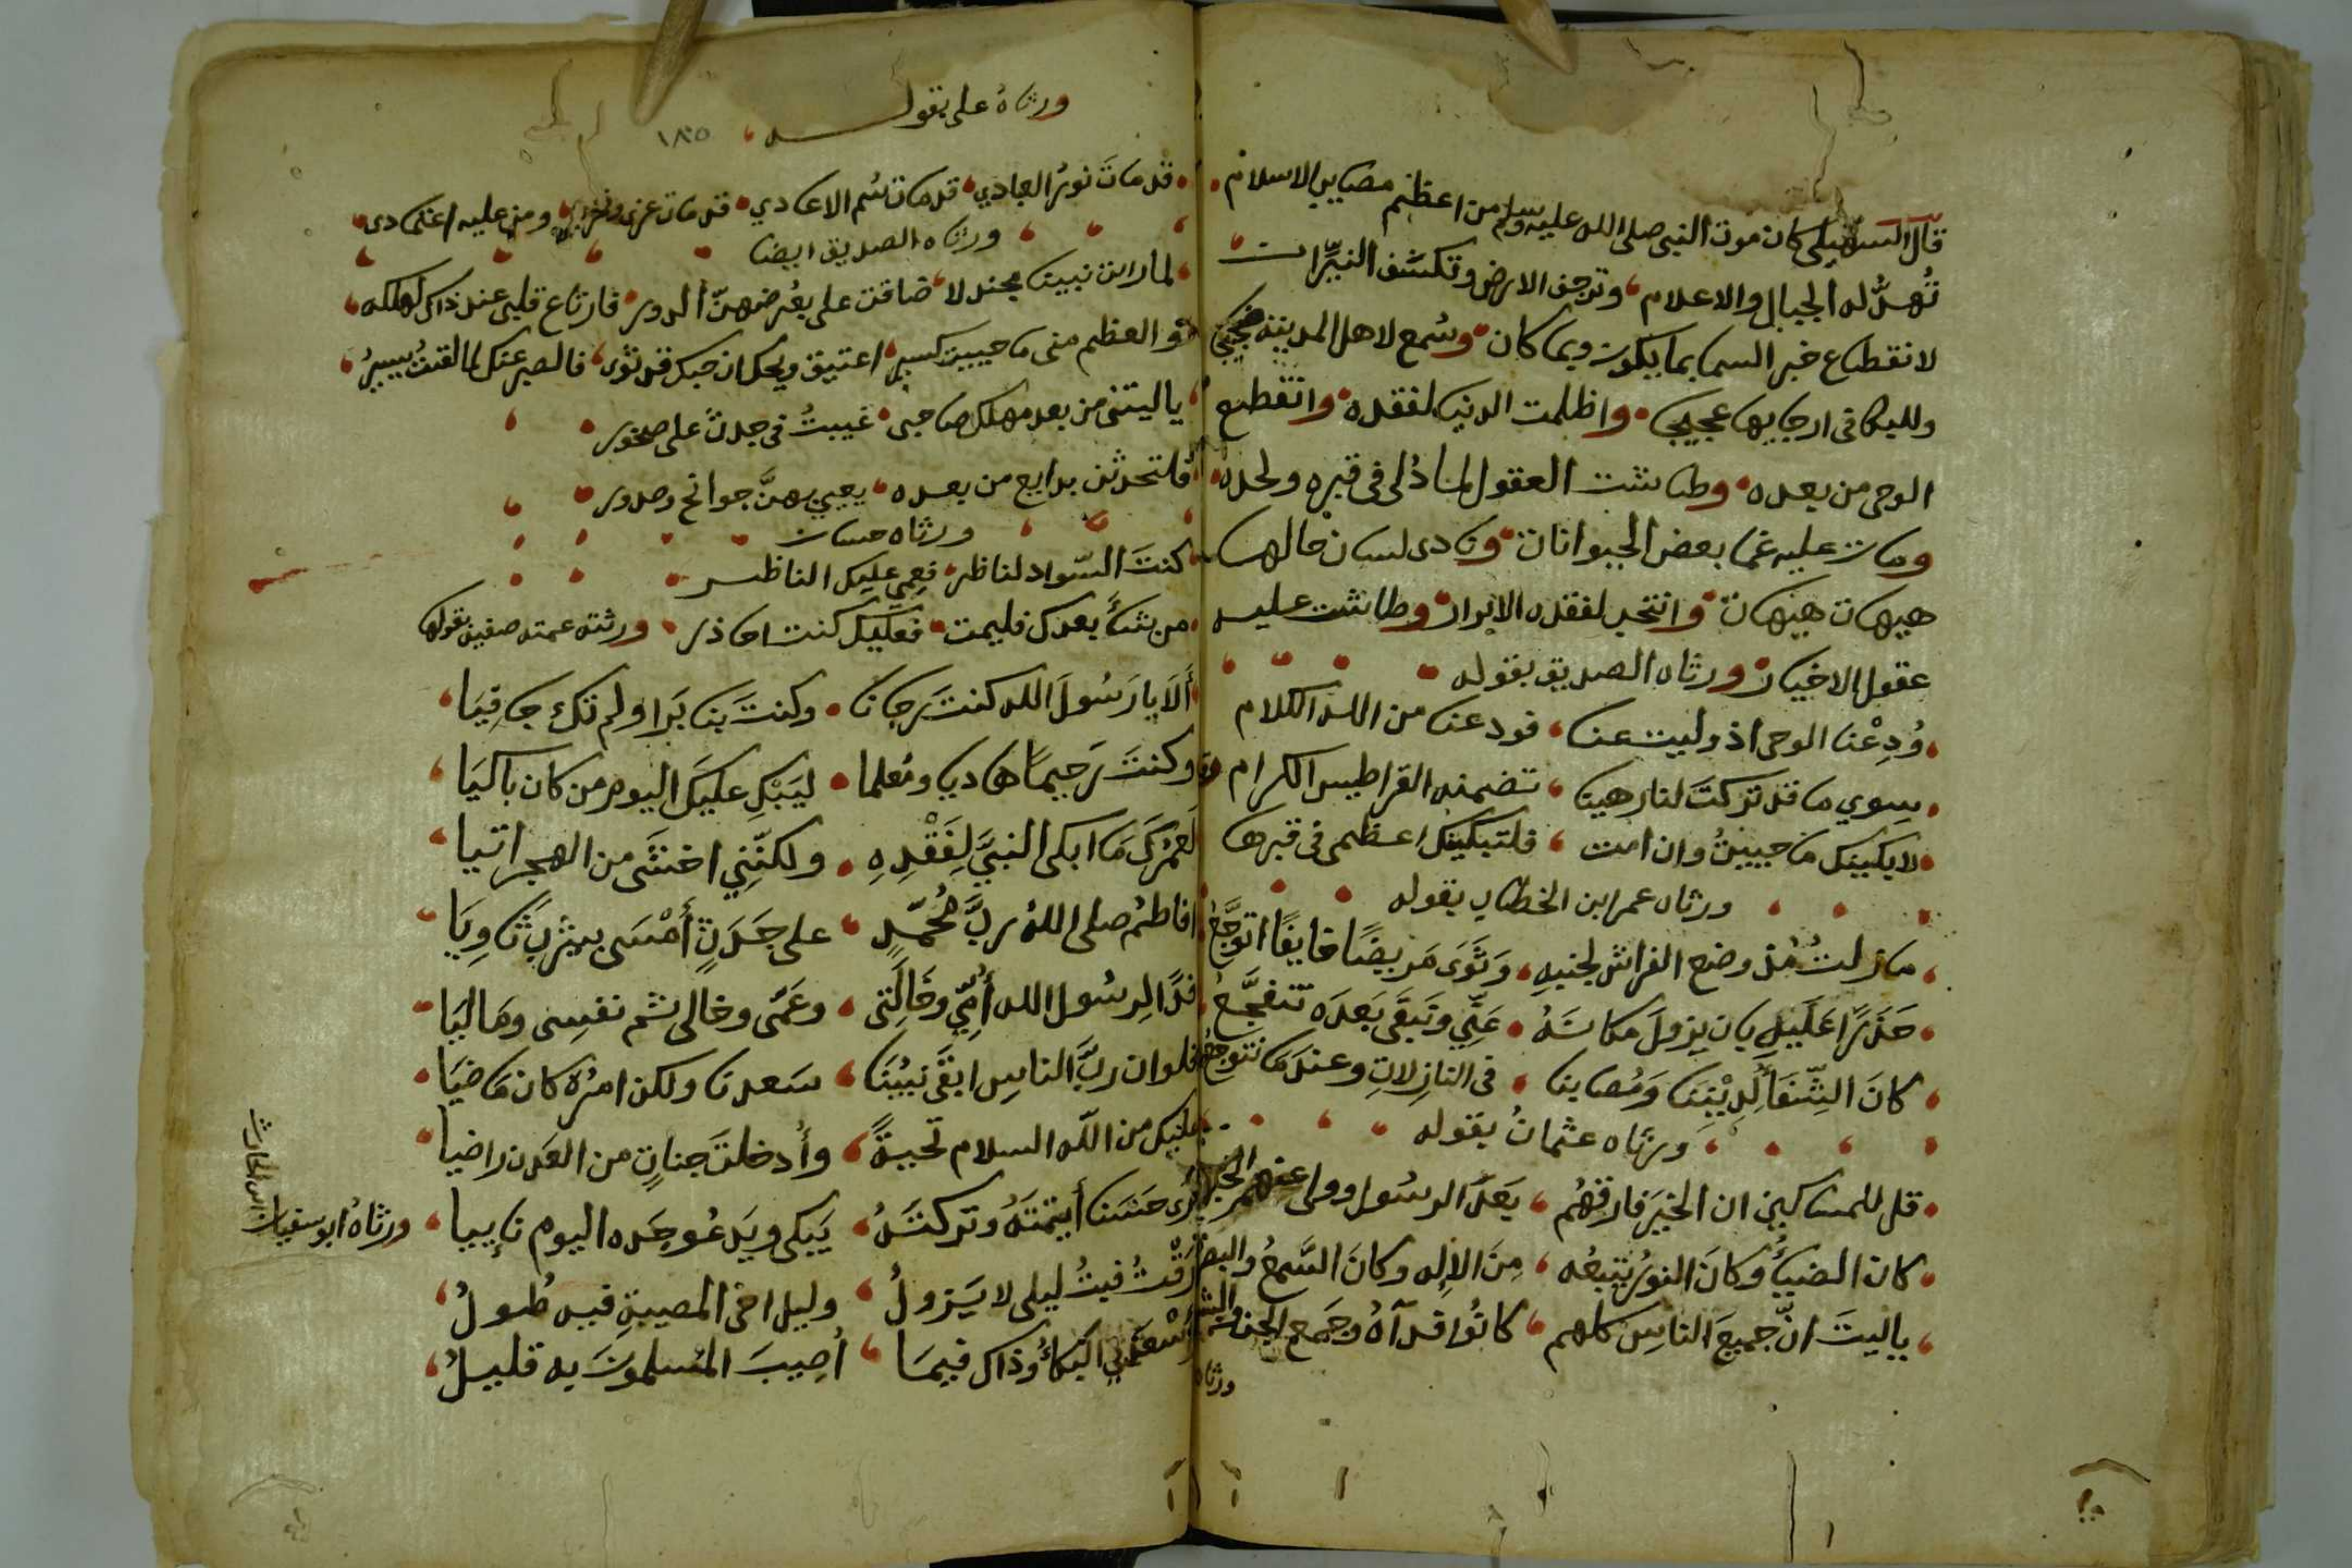 قال السهيلى كان موت النبى صلى الله عليه وسلم من اعظم مصايب الاسلام
تُهدُّ له الجبال والاعلام وترجف الارض وتكسف النيِّرات
لانقطاع خبر السما بما يكون وبما كان وسُمع لاهل المدينه ضجيج
وللبكا فى ارجايها عجيج واظلمت الدنيا لفقده وانقطع
الوحى من بعده وطاشت العقول لما دُلى فى قبره ولحده
ومات عليه غما بعض الحيوانات ونادى لسان حالها
هيهات هيهات وانتحب لفقده الابرار وطاشت عليه
عقول الاخيار ورثاه الصديق بقوله
وُدِعْنا الوحى اذ وليت عنا فودعنا من الله الكلام
سوي ما قد تركتَ لنا رهينا تضمنه القراطيس الكرام
لابكينك ما حييتُ وان امت فلتبكينك اعظمى فى قبرها
ورثاه عمر ابن الخطاب بقوله
مازلتُ مُذ وضع الفراش لجنبهِ وَثَوَى مَريضًا خايفًا اتوجَّعُ
حَذَرًا عَلَيهِ بان يزولَ مكانَهُ عَنِّي وتَبقَى بَعدَه تتفجَّعُ
كانَ الشِّفَا لِدِيْنِنَا وَمُصابنا فى النازِلاتِ وعندَما نتوجعُ
ورثاه عثمانُ بقوله
قل للمساكين ان الخيَرَ فارقهُم بَعدَ الرسُول وولى عنهم الخير
كان الضياُ وكانَ النورُ يتبعُه مِنَ الاِلِه وكانَ السَّمعُ والبصر
ياليتَ انّ جميعَ الناسِ كلهم كانُوا فدآهُ وجَمع الجن والبشر
ورثاه
ورثاهُ على بقوله
١٨٥
قد ماتَ نورُ العبادي قد مات سُم الاعادي قد مات عزى ومن عليه اعتمادى
ورثاه الصديق ايضا
لما رايت نبينا مجندلا ضاقت على بعُرضهنّ الدور فارتاع قلبى عند ذاك لهلكه
والعظم منى ما حييت كسير اعتيق ويحك ان حبك قد ثوى فالصبر عنك لما لقيتُ يسيرُ
ياليتنى من بعد مهلك صاحبى غيبتُ فى جدث على صخور
فلتحدثن بدايع من بعده يعيي بهنَّ جوانح وصدور
ورثاه حسان
كنتَ السّواد لناظر فعمِي عليك الناظر
من شأَ بعدك فليمت فعليك كنت احاذر ورثته عمته صفيه بقولها
أَلاَ يا رَسُولَ الله كنت رجانا وكنتَ بنا بَرا ولم تك جافِيَا
وكنتَ رَحِيمًا هاديا ومُعلما ليَبْكِ عليكَ اليوم من كان باكيَا
لَعَمْرُكَ مَا ابكى النبيَّ لِفَقْدِهِ ولكنَّنِي اخشَى من الهجر اتيا
افاطمُ صلى اللهُ ربُّ مُحُمّدٍ على جَدَثٍ أَمْسَى بيثرِبَ ثَاوِيَا
فدًا لِرسُول الله أُمِّي وخَالَتِى وعَمّى وخالى ثم نفسِى ومَاليَا
فلو ان ربَّ الناسِ ابقَى نبيُنَا سَعدنا ولكن امرُهُ كان مَاضيَا
عليك من الله السلام تحيةً وأُدخلتَ جناتٍ من العَدن راضيا
ارى حَسَنا أيتمتَهُ وتركتَهُ يَبكى ويَدعُو جَده اليوم نايبا ورثاهُ ابو سفيان
ابن الحارث
ارقتُ فبتُ ليلى لا يَزولُ وليل اخى المصيبةِ فيه طُولُ
وَاسْعَدَنِي البَكاُ وذاك فيمَا أُصِيبَ المُسلمونَ به قليلُ